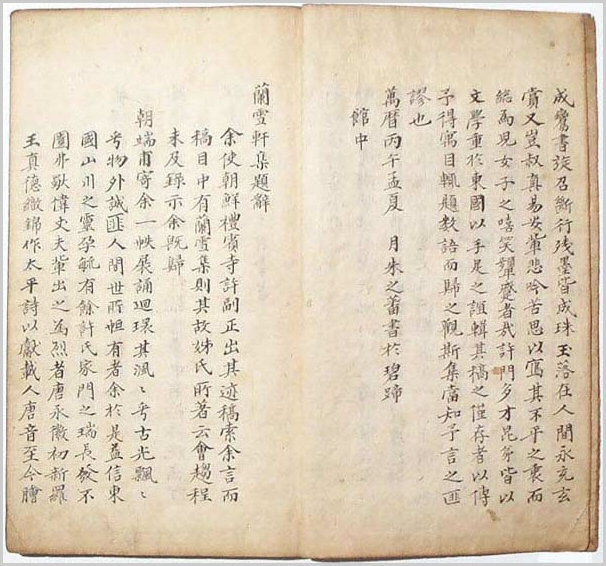 成鸞書旋召斷行残墨皆成珠玉落在人間永充玄
賞又豈叔真易安輩悲吟苦思以寫其不平之衷而
総為兒女子之嘻笑顰蹙者哉許門多才昆弟皆以
文學重於東國以手足之誼輯其稿之僅存者以傳
予得寓目輒題數語而歸之觀斯集當知予言之匪
謬也
萬曆丙午孟夏 月朱之蕃書於碧蹄
館中
蘭雪軒集題辭
余使朝鮮禮賓寺許副正出其迹稿索余言而
稿目中有蘭雪集則其故姊氏所著云會趨程
未及錄示余既歸
朝端甫寄余一帙展誦迴環其渢〻乎古先飄〻
乎物外誠匪人間世所恒有者余於是益信東
國山川之靈孕毓有餘許氏家門之瑞長發不
匱弗獨偉丈夫輩出之為烈者唐永徽初新羅
王真德織錦作太平詩以獻載入唐音至今膾